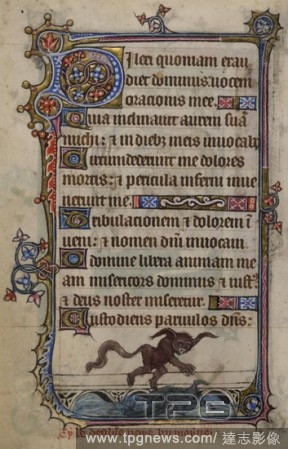 Dilexi quoniam exau
diet dominus vocem
oracionis mee.
Quia inclinauit aurem suā
michi: et in dieb; meis inuocabo
Circumdederunt me dolores
mortis: et pericula inferni inue
nerunt me.
Tribulacionem et dolorem ī
ueni: et nomen dñi inuocaui
O domine libera animam me
am misericors dominus et iust9
et deus noster miseretur.
Custodiens paruulos dñs:
TPG
www.tpgnews.com/達志影像